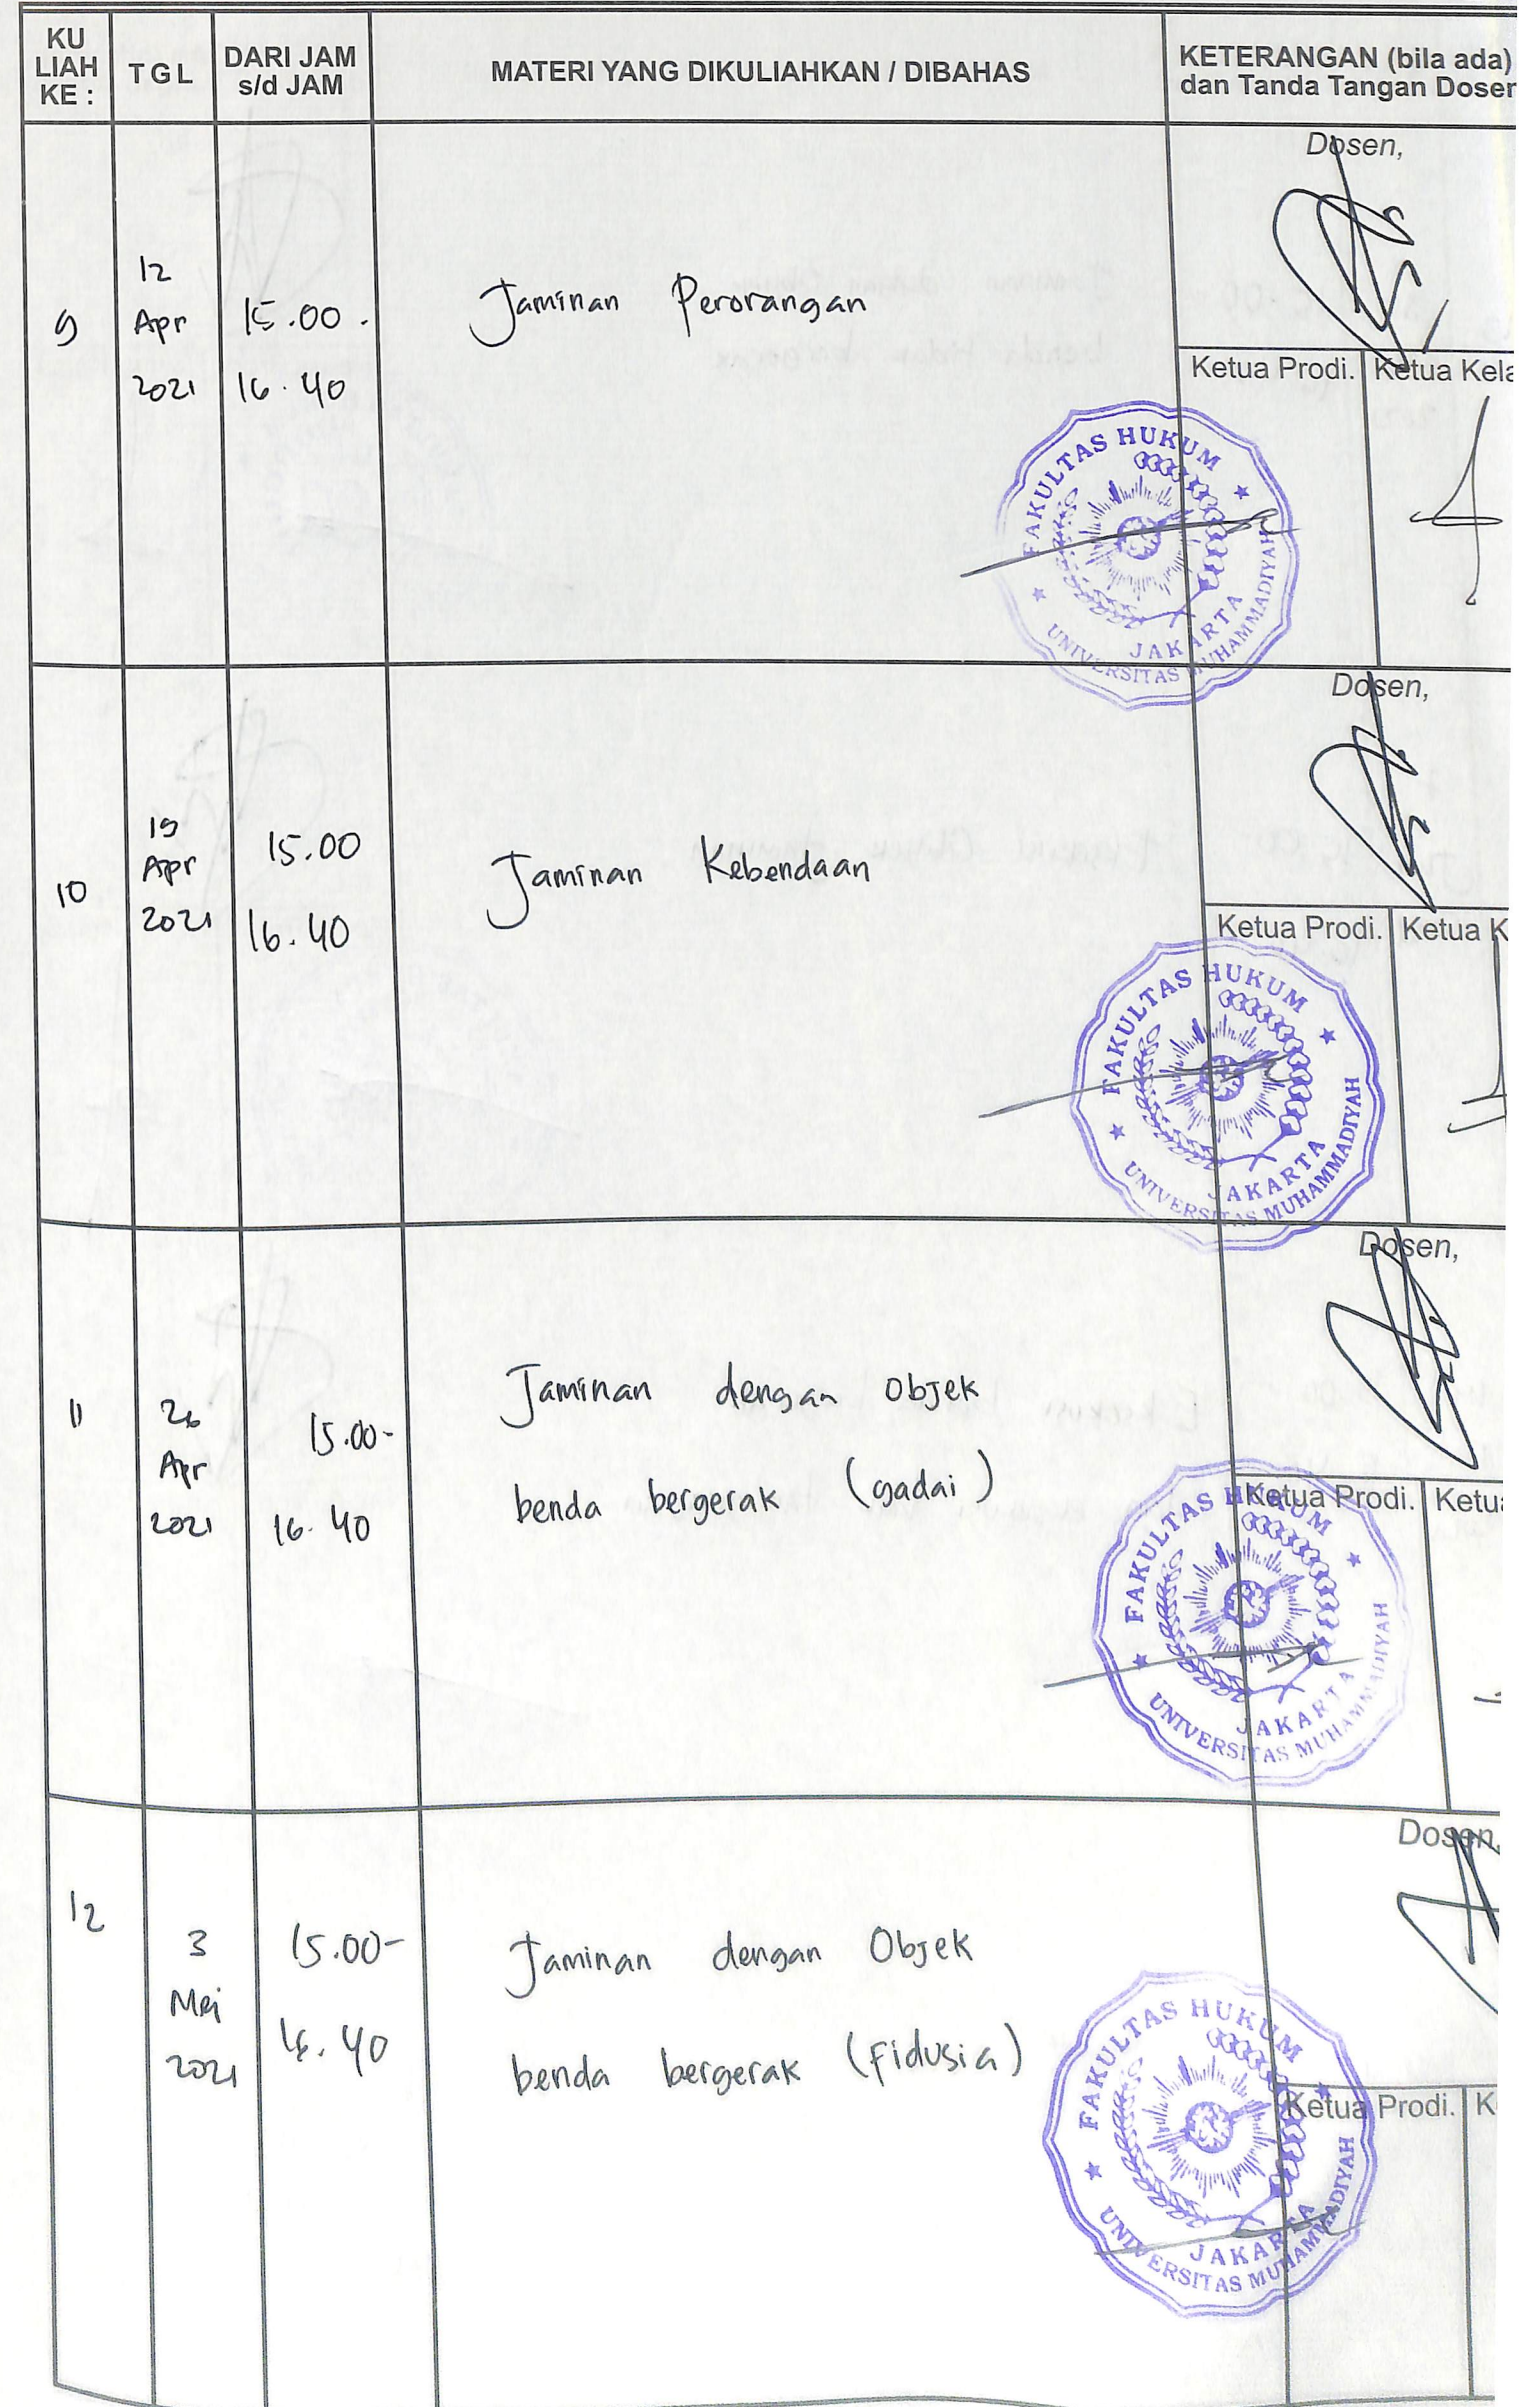 KU
LIAH
KE :
TGL
DARI JAM
s/d JAM
MATERI YANG DIKULIAHKAN / DIBAHAS
KETERANGAN (bila ada)
dan Tanda Tangan Dosen
9
12
Apr
2021
15.00 -
16.40
Jaminan Perorangan
Dosen,
Ketua Prodi. Ketua Kela
FAKULTAS HUKUM
JAKARTA
UNIVERSITAS MUHAMMADIYAH
10
19
Apr
2021
15.00
16.40
Jaminan Kebendaan
Dosen,
Ketua Prodi. Ketua K
FAKULTAS HUKUM
JAKARTA
UNIVERSITAS MUHAMMADIYAH
11
26
Apr
2021
15.00-
16.40
Jaminan dengan Objek
benda bergerak (gadai)
Dosen,
Ketua Prodi. Ketua
FAKULTAS HUKUM
JAKARTA
UNIVERSITAS MUHAMMADIYAH
12
3
Mei
2021
15.00-
16.40
Jaminan dengan Objek
benda bergerak (Fidusia)
Dosen,
Ketua Prodi. K
FAKULTAS HUKUM
JAKARTA
UNIVERSITAS MUHAMMADIYAH